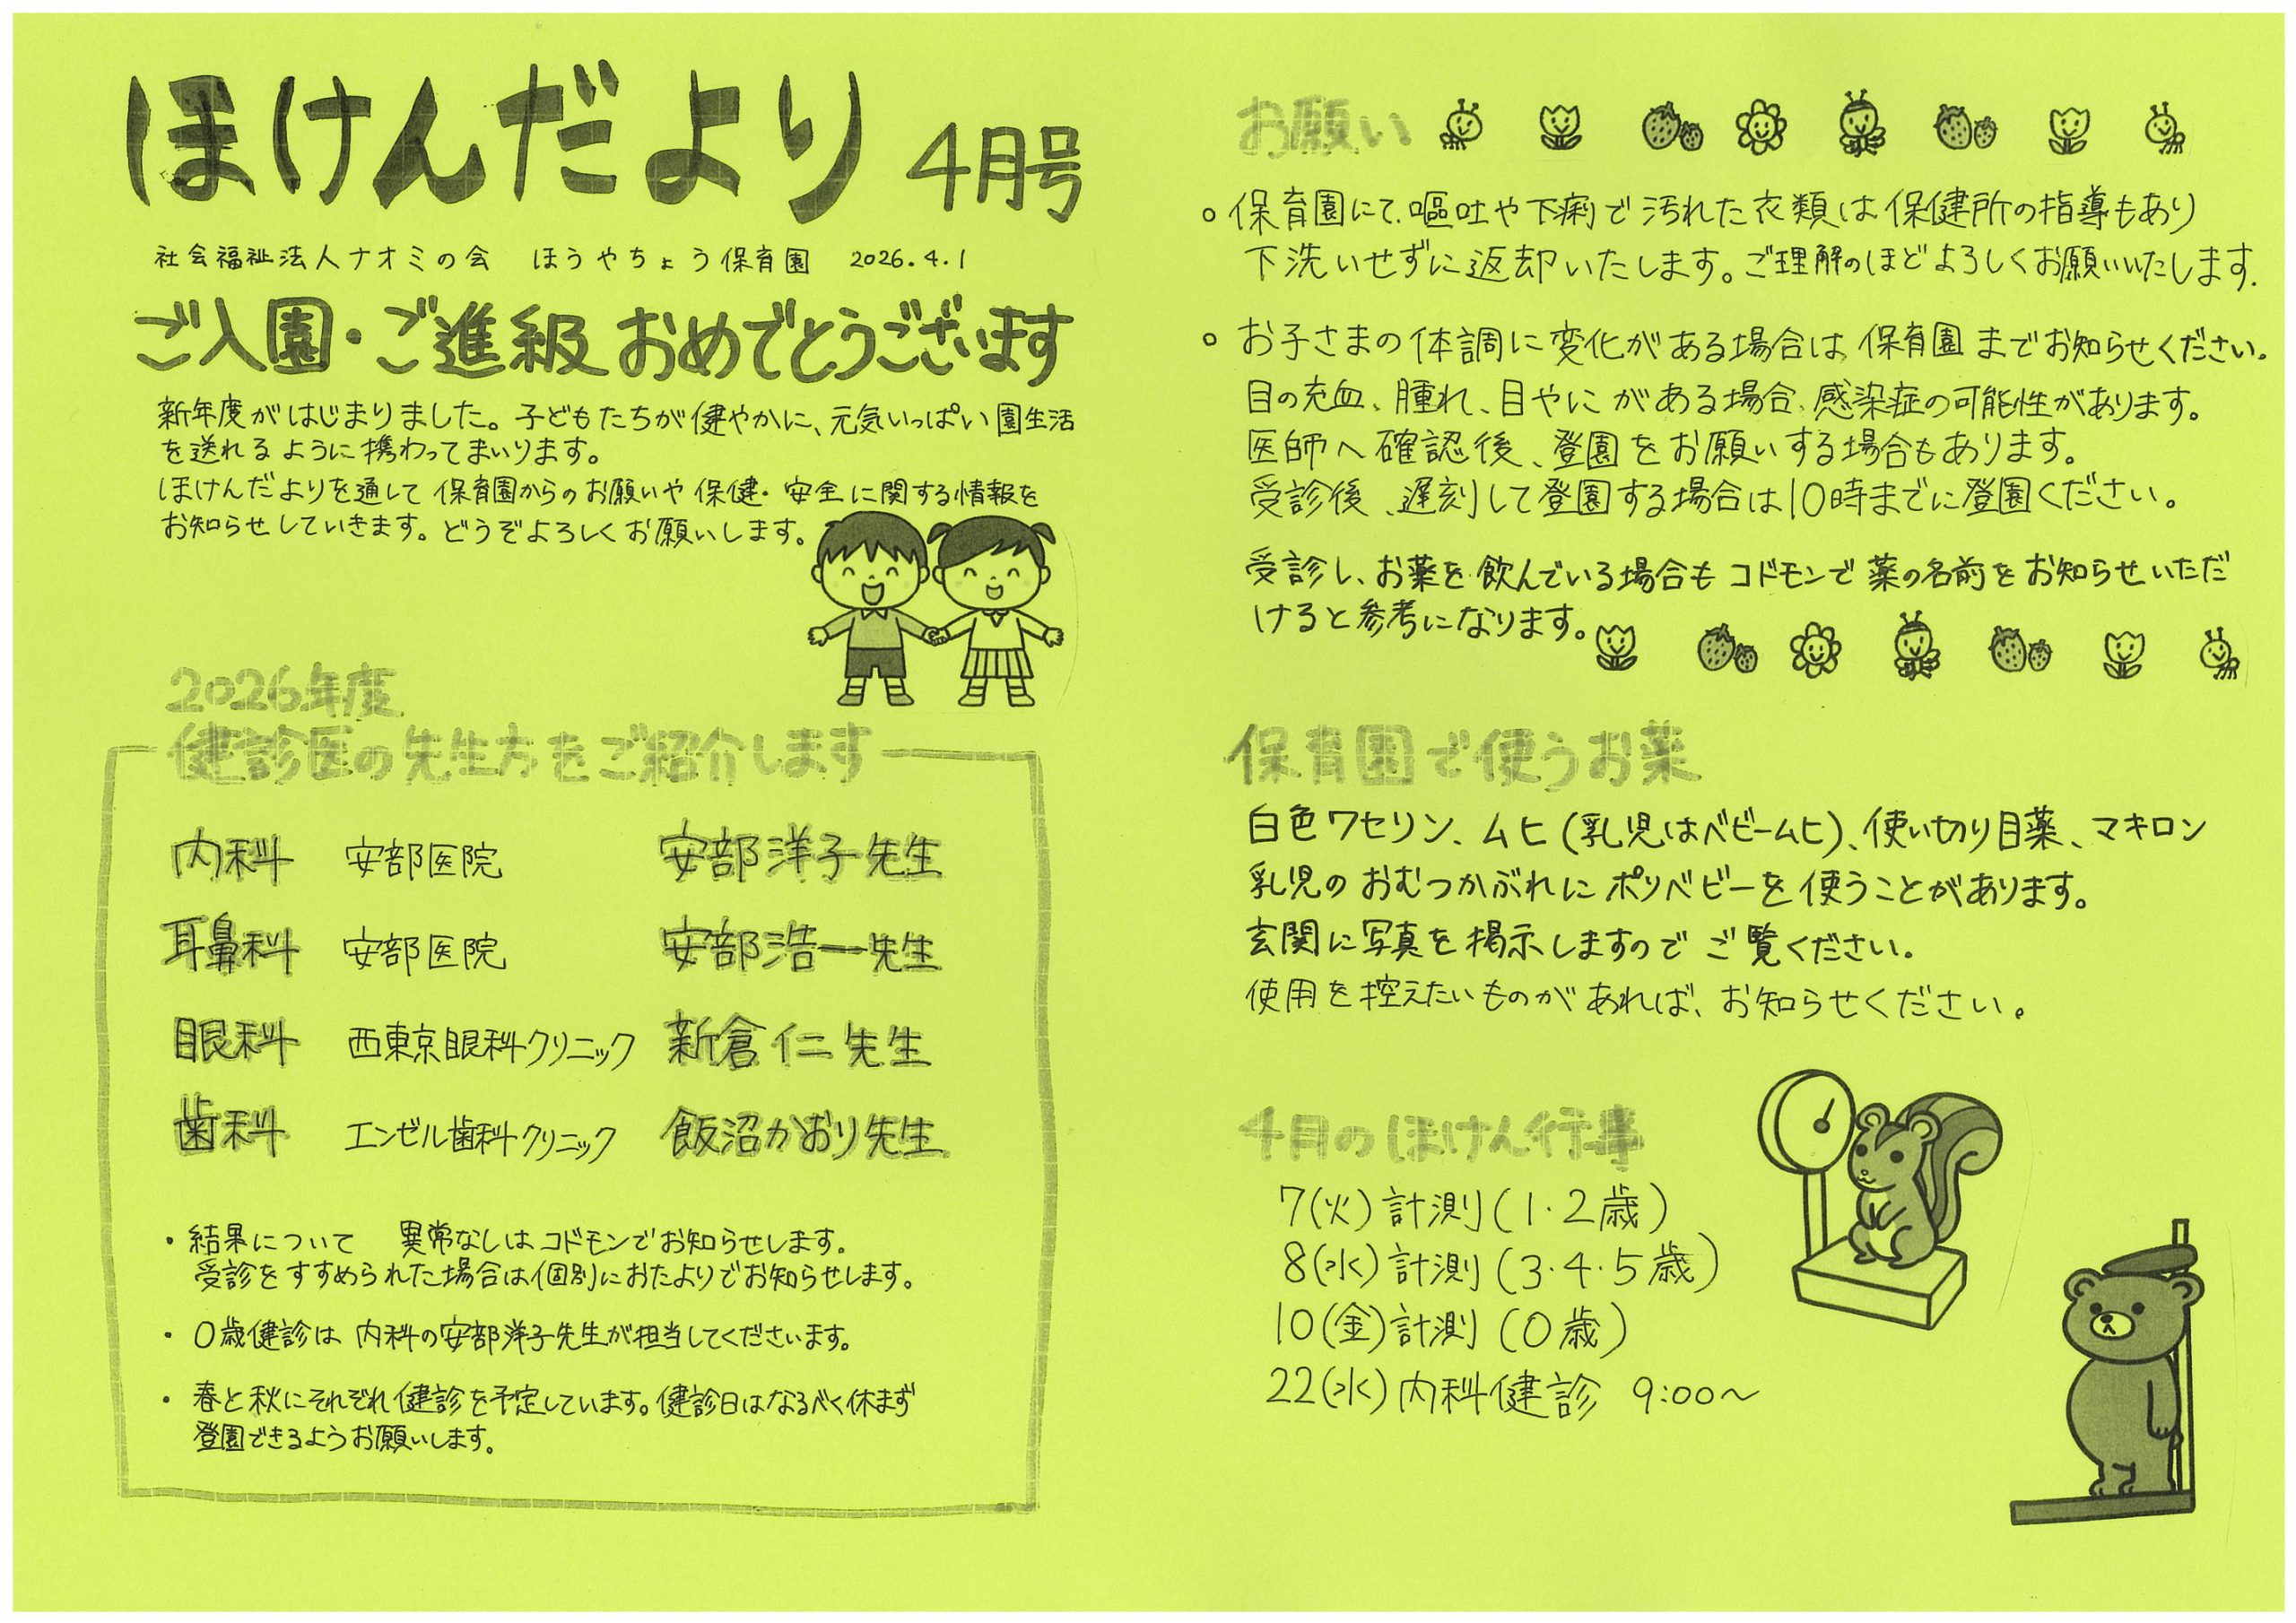 ほけんだより 4月号
社会福祉法人ナオミの会 ほうやちょう保育園 2026.4.1
ご入園・ご進級おめでとうございます
新年度がはじまりました。子どもたちが健やかに、元気いっぱい園生活
を送れるように携わってまいります。
ほけんだよりを通して保育園からのお願いや保健・安全に関する情報を
お知らせしていきます。どうぞよろしくお願いします。
2026年度
健診医の先生方をご紹介します
内科 安部医院 安部洋子先生
耳鼻科 安部医院 安部浩一先生
眼科 西東京眼科クリニック 新倉仁先生
歯科 エンゼル歯科クリニック 飯沼かおり先生
・結果について 異常なしはコドモンでお知らせします。
受診をすすめられた場合は個別におたよりでお知らせします。
・0歳健診は内科の安部洋子先生が担当してくださいます。
・春と秋にそれぞれ健診を予定しています。健診日はなるべく休まず
登園できるようお願いします。
お願い
○保育園にて、嘔吐や下痢で汚れた衣類は保健所の指導もあり
下洗いせずに返却いたします。ご理解のほどよろしくお願いいたします。
○お子さまの体調に変化がある場合は、保育園までお知らせください。
目の充血、腫れ、目やにがある場合、感染症の可能性があります。
医師へ確認後、登園をお願いする場合もあります。
受診後、遅刻して登園する場合は10時までに登園ください。
受診し、お薬を飲んでいる場合もコドモンで薬の名前をお知らせいただ
けると参考になります。
保育園で使うお薬
白色ワセリン、ムヒ(乳児はベビームヒ)、使い切り目薬、マキロン
乳児のおむつかぶれにポリベビーを使うことがあります。
玄関に写真を掲示しますのでご覧ください。
使用を控えたいものがあれば、お知らせください。
4月のほけん行事
7(火)計測(1・2歳)
8(水)計測(3・4・5歳)
10(金)計測(0歳)
22(水)内科健診 9:00～